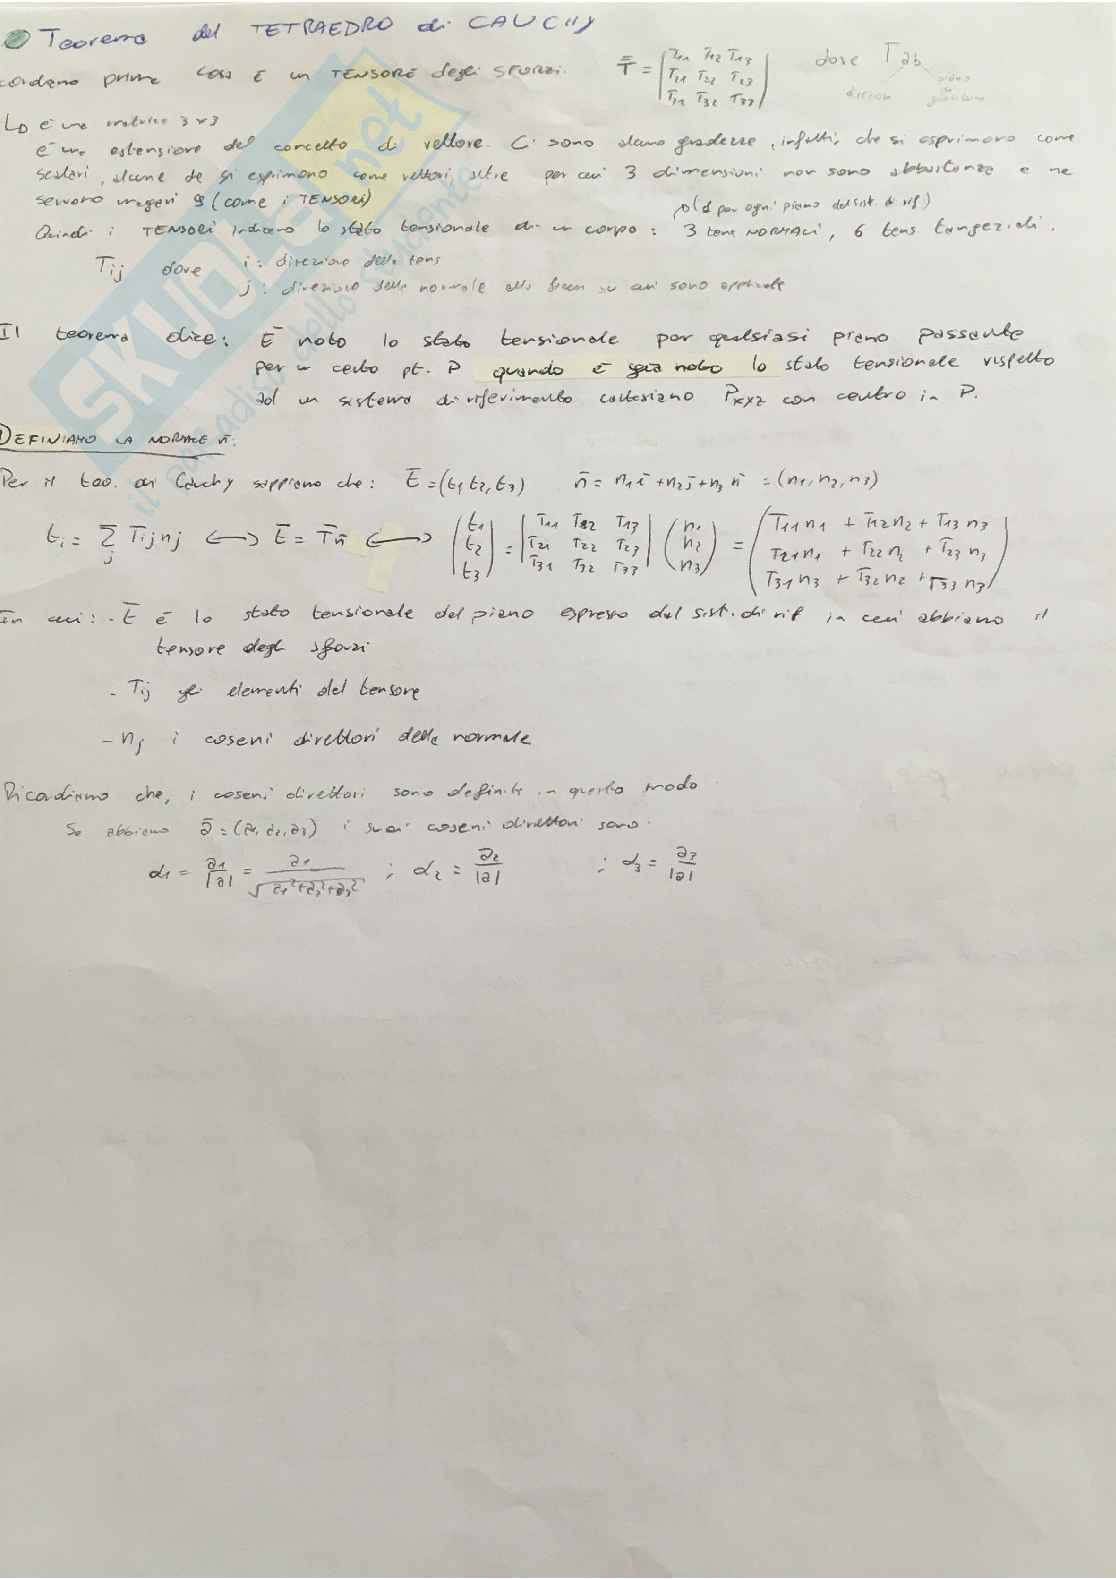 Teorema del TETRAEDRO di CAUCHY
cordiamo prima cosa è un TENSORE degli SFORZI. T̿ = |T11 T12 T13| dove Tab
|T21 T22 T23| direzione piano di
|T31 T32 T33| giacitura
↳ è una matrice 3x3
è una estensione del concetto di vettore. Ci sono alcune gradezze, infatti, che si esprimono come
scalari, alcune che si esprimono come vettori, altre per cui 3 dimensioni non sono abbastanza e ne
servono magari 9 (come i TENSORI)
(1 per ogni piano del sist. di rif.)
Quindi i TENSORI indicano lo stato tensionale di un corpo: 3 tens NORMALI, 6 tens tangenziali.
Tij dove i: direzione della tens
j: direzione della normale alla faccia su cui sono applicate
Il teorema dice: È noto lo stato tensionale per qualsiasi piano passante
per un certo pt. P quando è già noto lo stato tensionale rispetto
ad un sistema di riferimento cartesiano Pxyz con centro in P.
DEFINIAMO LA NORMALE n̄:
Per il teo. di Cauchy sappiamo che: t̄ = (t1, t2, t3) n̄ = n1 ī + n2 j̄ + n3 k̄ = (n1, n2, n3)
ti = Σj Tij nj ⟷ t̄ = T̄n̄ ⟷ (t1 t2 t3) = |T11 T22 T13| (n1 n2 n3) = (T11n1 + T12n2 + T13n3
|T21 T22 T23| T21n1 + T22n2 + T23n3
|T31 T32 T33| T31n3 + T32n2 + T33n3)
In cui: - t̄ è lo stato tensionale del piano espresso dal sist. di rif in cui abbiamo il
tensore degli sforzi
- Tij gli elementi del tensore
- nj i coseni direttori della normale
Ricordiamo che, i coseni direttori sono definiti in questo modo
Se abbiamo ā = (a1, a2, a3) i suoi coseni direttori sono:
α1 = a1/|a| = a1/√(a1²+a2²+a3²) ; α2 = a2/|a| ; α3 = a3/|a|
SKUOLA.net